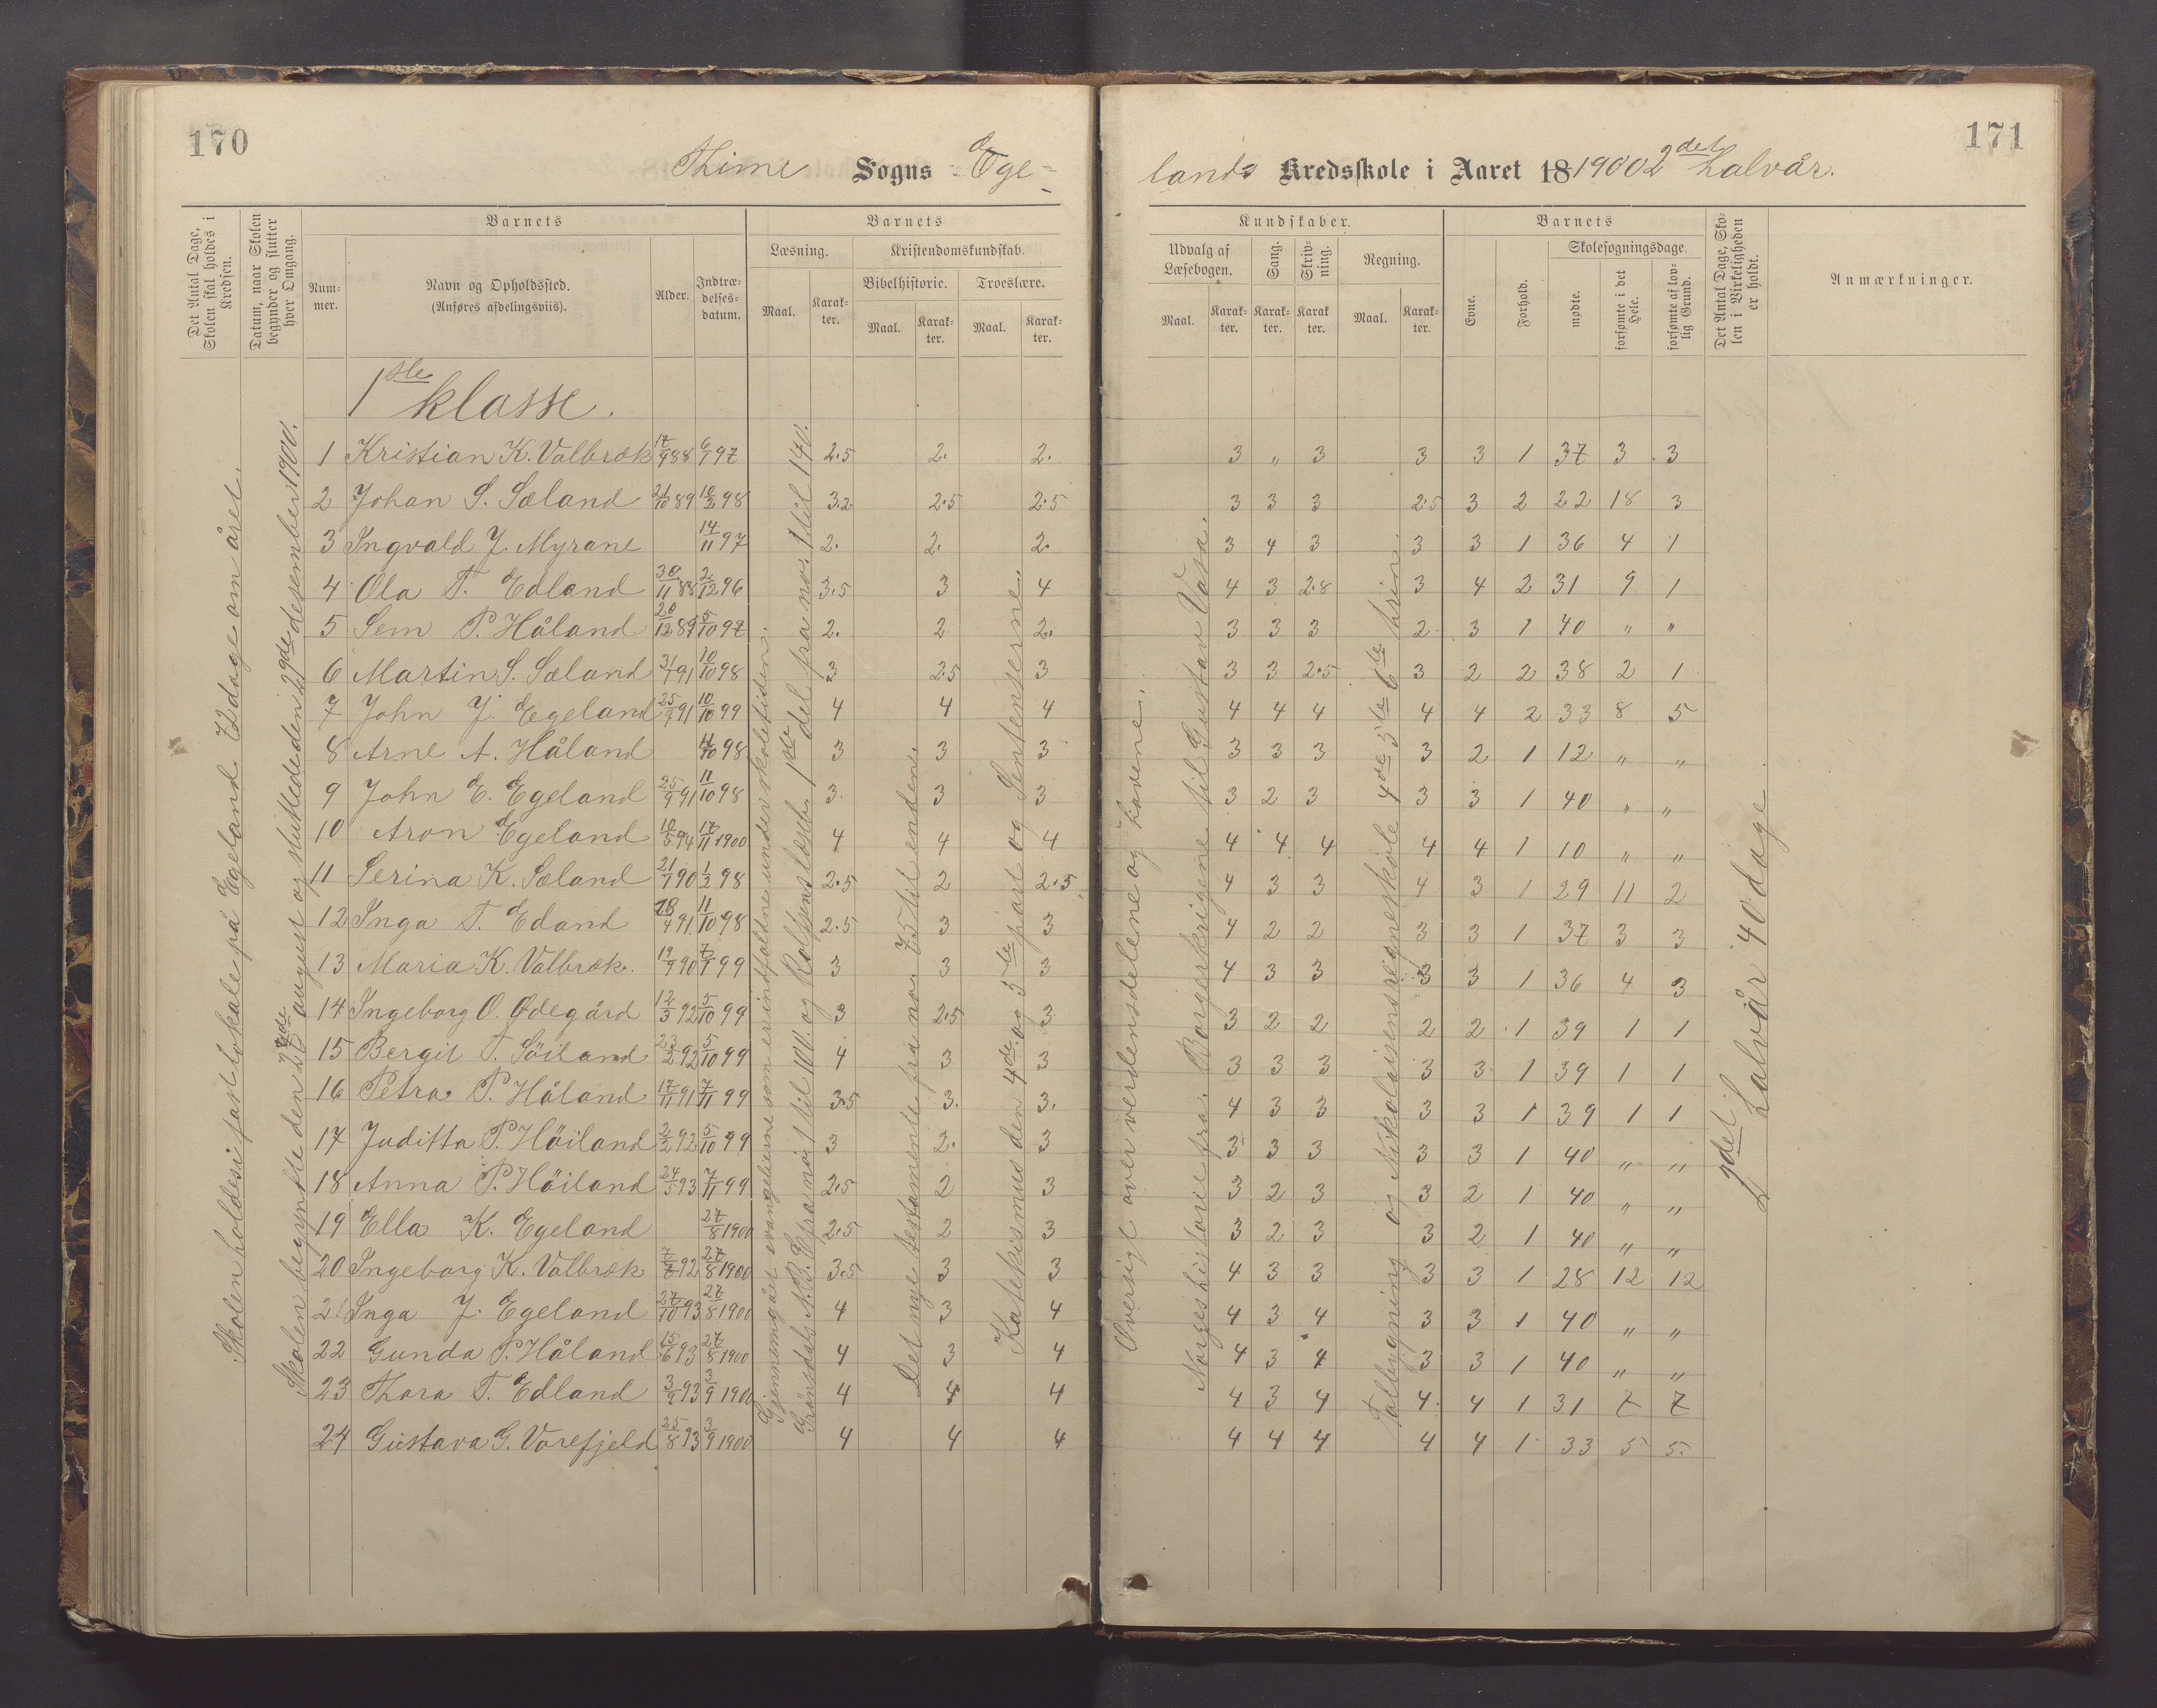 170
Thime Sogns Ege-
Det Antal Dage, Skolen skal holdes i Kredsen.
Datum, naar Skolen begynder og slutter hver Omgang.
Barnets
Num-mer.
Navn og Opholdssted.
(Anføres afdelingsviis).
Alder.
Indtræ-delses-datum.
Barnets
Læsning.
Kristendomskundskab.
Bibelhistorie.
Troeslære.
Maal.
Karak-ter.
Maal.
Karak-ter.
Maal.
Karak-ter.
1ste klasse.
1 Kristian K. Valbræk 17/9 88 6/1 97 2.5 2. 2.
2 Johan S. Sæland 21/10 89 10/2 98 3.2 2.5 2.5
3 Ingvald J. Myrane 14/11 97 2. 2. 2.
4 Ola T. Edland 30/11 88 2/12 96 3.5 3 4
5 Sem P. Håland 20/12 89 /10 97 2. 2 2.
6 Martin S. Sæland 31/7 91 10/10 98 3 2.5 3
7 John J. Egeland 25/9 91 10/10 99 4 4 4
8 Arne A. Håland /10 98 3 3 3
9 John E. Egeland 25/9 91 11/10 98 3. 3 3
10 Aron Egeland 10/5 94 17/11 1900 4 4 4
11 Serina K. Sæland 21/1 90 1/2 98 2.5 2 2.5
12 Inga T. Edand 18/4 91 11/10 98 2.5 3 3
13 Maria K. Valbræk. 19/9 90 7/1 99 3 3 3
14 Ingeborg O. Ødegård 12/3 92 5/10 99 3 2.5 3
15 Bergit T. Söiland 23/2 92 5/10 99 4 3 3
16 Petra P. Håland 17/11 91 7/11 99 3.5 3. 3.
17 Juditta P. Höiland 2/2 92 5/10 99 3 2. 3
18 Anna P. Höiland 24/5 93 7/11 99 2.5 2 3
19 Ella K. Egeland 27/8 1900 2.5 2 3
20 Ingeborg K. Valbræk 7/7 92 27/8 1900 3.5 3 3
21 Inga J. Egeland 27/10 93 27/8 1900 4 3 4
22 Gunda P. Håland 15/6 93 27/8 1900 4 3 4
23 Thora T. Edland 3/9 93 3/9 1900 4 4 4
24 Gustava G. Vorefjeld 25/8 93 3/9 1900 4 4 4
Skolen holdes i fast lokale på Egeland 72 dage om året.
Skolen begynte den 27de august og sluttede den 29de desember 1900.
Gjennemgåt evangelierne som er indfaldne under skoletiden.
Gröndals A.B.C. fra no. 1 til 100. og Rolfsens læseb. 1ste del fra no. 1 til 140.
Det nye testamente fra no. 75 til enden.
Katekismus den 4de og 5te part og Sentenserne.
171
lands Kredsskole i Aaret 18 1900 2det halvår.
Kundskaber.
Udvalg af Læsebogen.
Sang.
Skriv-ning.
Regning.
Maal.
Karak-ter.
Karak-ter.
Karak-ter.
Maal.
Karak-ter.
Barnets
Evne.
Forhold.
Skolesøgningsdage.
mødte.
forsømte i det Hele.
forsømte af lov-lig Grund.
Det Antal Dage, Sko-len i Virkeligheden er holdt.
Anmærkninger.
3 „ 3 3 3 1 37 3 3
3 3 3 2.5 3 2 22 18 3
3 4 3 3 3 1 36 4 1
4 3 2.8 3 4 2 31 9 1
3 3 3 2. 3 1 40 „ „
3 3 2.5 3 2 2 38 2 1
4 4 4 4 4 2 33 8 5
3 3 3 3 2 1 12 „ „
3 2 3 3 3 1 40 „ „
4 4 4 4 4 1 10 „ „
4 3 3 4 3 1 29 11 2
4 2 2 3 3 1 37 3 3
4 3 3 3 3 1 36 4 3
3 2 2 2 2 1 39 1 1
3 3 3 3 3 1 39 1 1
4 3 3 3 3 1 39 1 1
3 3 3 3 3 1 40 „ „
3 2 3 3 2 1 40 „ „
3 2 3 3 2 1 40 „ „
4 3 3 3 3 1 28 12 12
4 3 4 3 3 1 40 „ „
4 3 4 3 3 1 40 „ „
4 3 4 4. 4 1 31 7 7
4 4 4 4 4 1 33 5 5.
Oversigt over verdensdelene og havene.
Norgeshistorie fra Borgerkrigene til Gustav Vasa.
Tallbygning og Nikolaisens regneskole 4de 5te 6te trin.
2det halvår 40 dage.